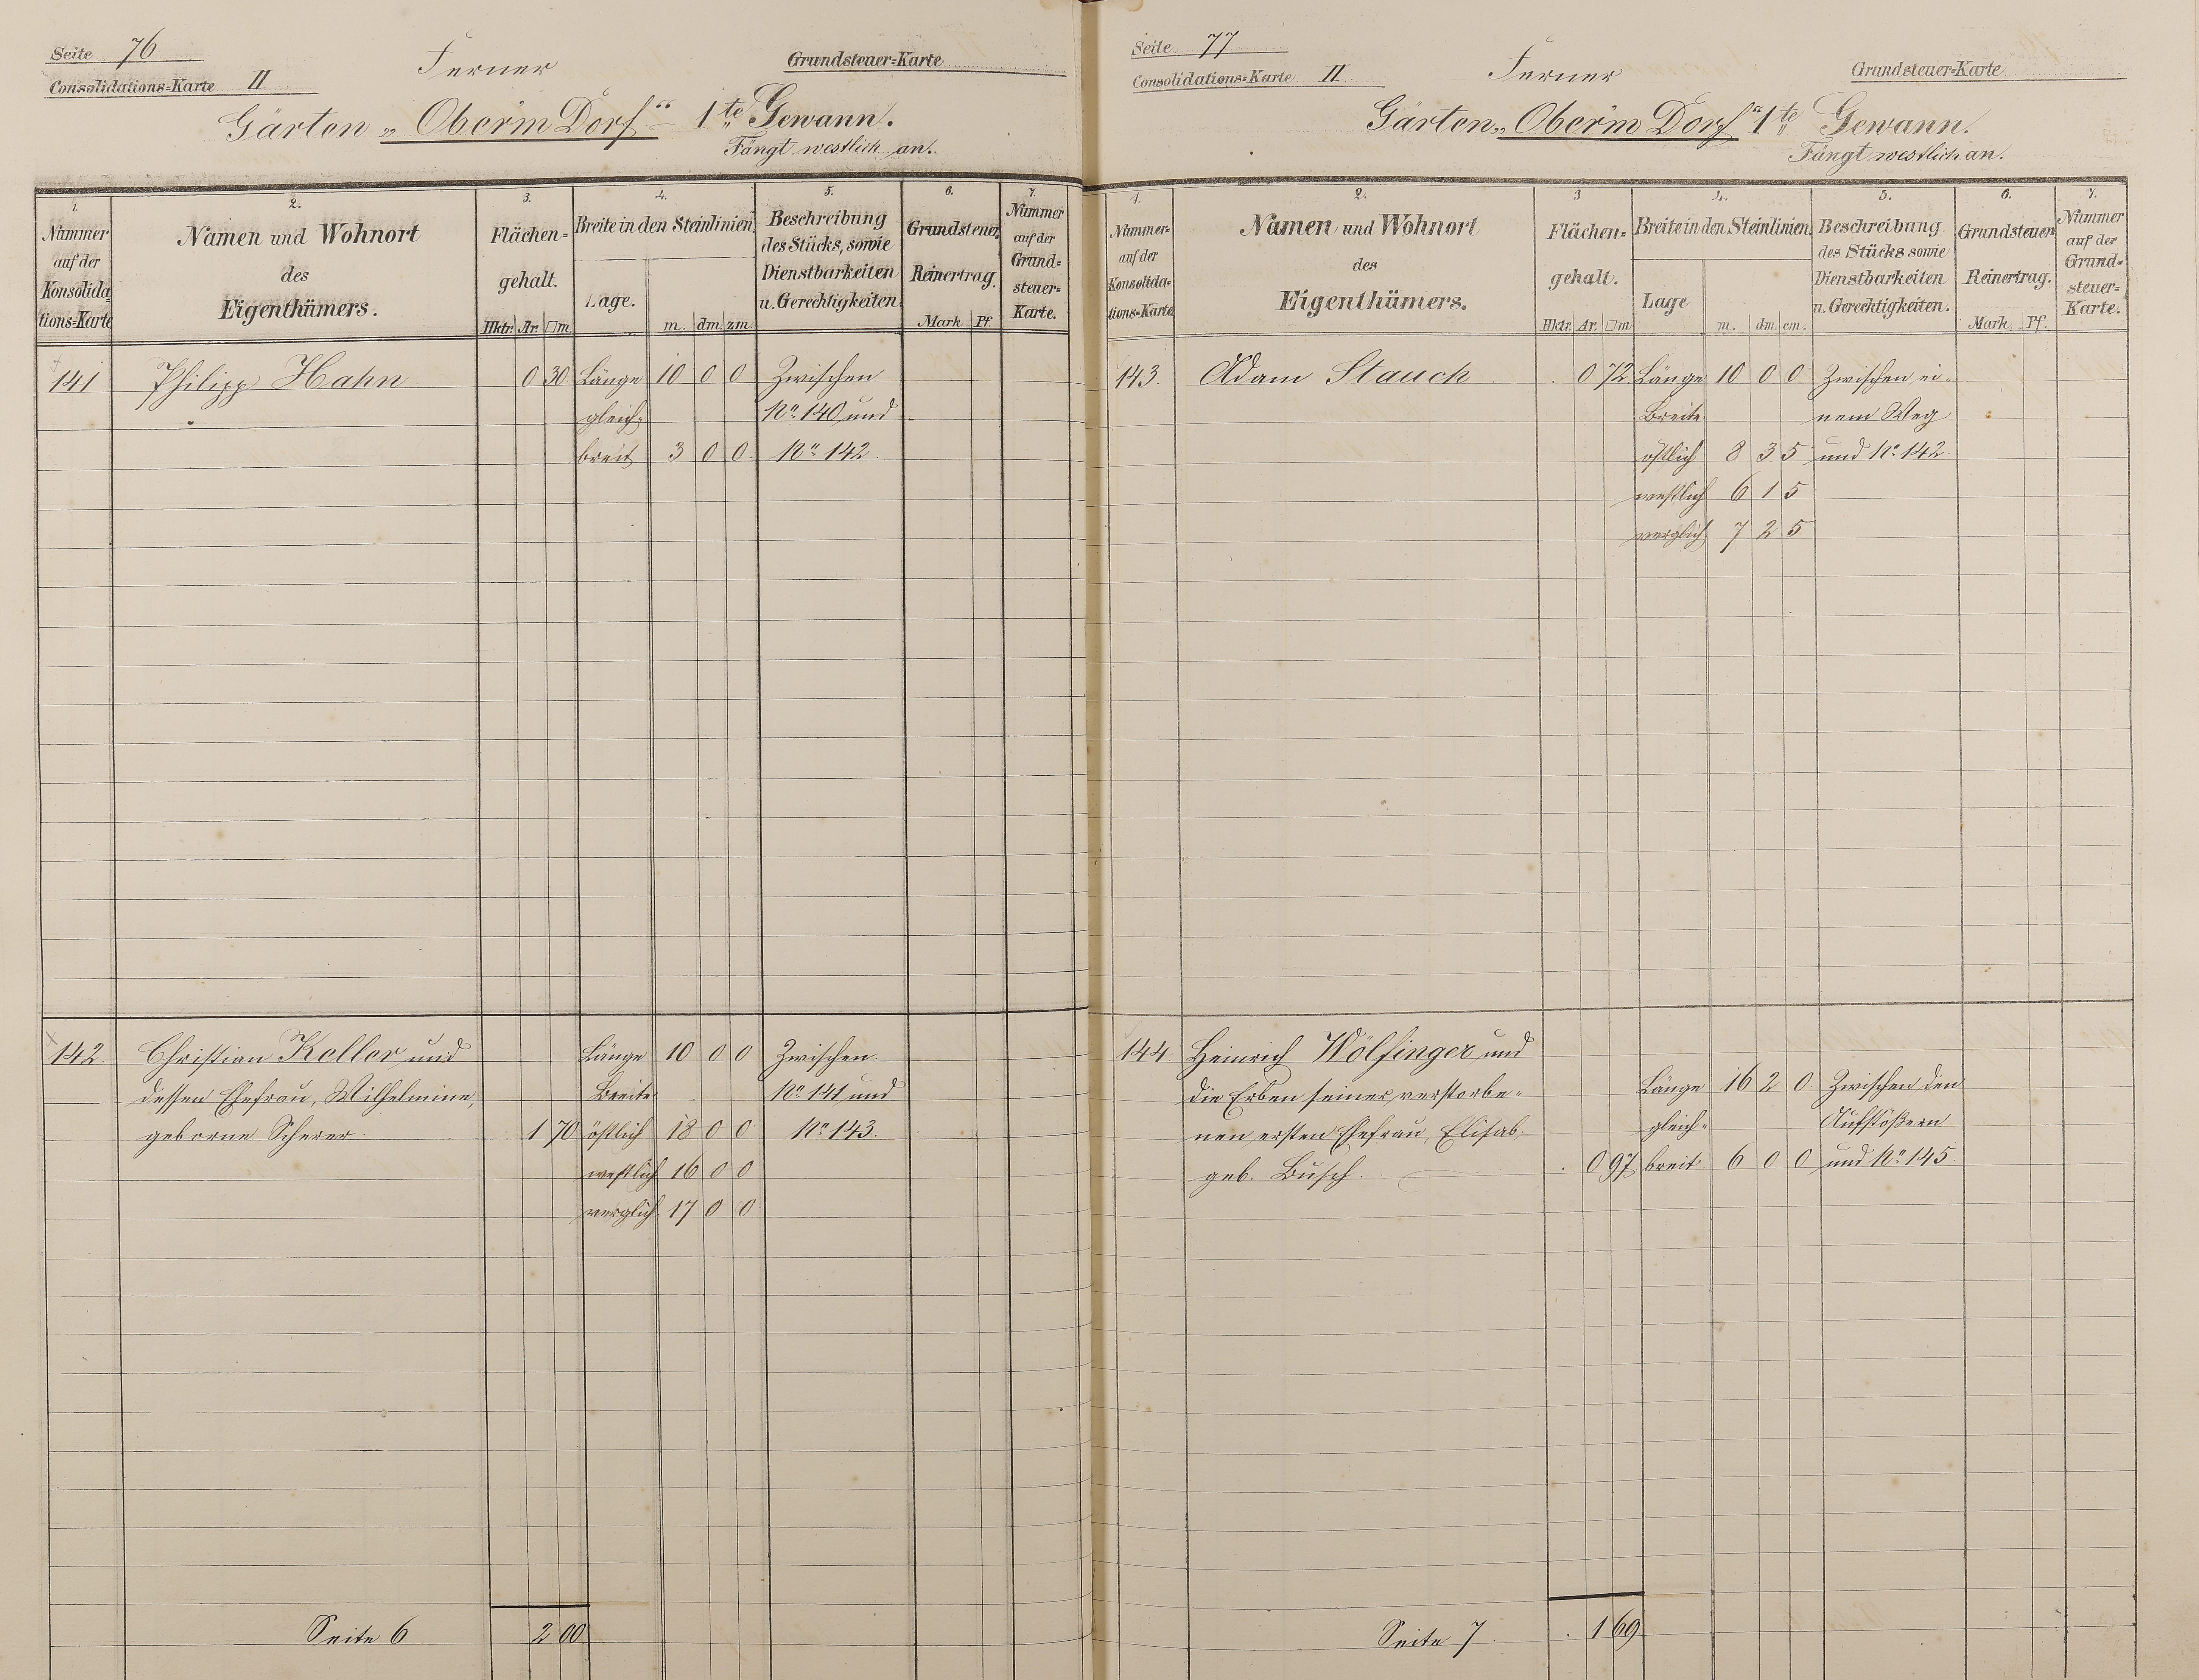 Seite 76
Consolidations-Karte II
Ferner
Grundsteuer-Karte
Gärten „Ober'm Dorf“ 1te Gewann.
Fängt westlich an.
1.
Nummer
auf der
Konsolida-
tions-Karte
2.
Namen und Wohnort
des
Eigenthümers.
3.
Flächen-
gehalt.
Hktr. Ar. □m
4.
Breite in den Steinlinien
Lage.
m. dm. zm.
5.
Beschreibung
des Stücks, sowie
Dienstbarkeiten
u. Gerechtigkeiten.
6.
Grundsteuer
Reinertrag.
Mark Pf.
7.
Nummer
auf der
Grund-
steuer-
Karte.
141 Philipp Hahn 0 30 Länge 10 0 0 Zwischen
gleich- No 140 und
breit 3 0 0 No 142.
142. Christian Keller und Länge 10 0 0 Zwischen
dessen Ehefrau, Wilhelmine, Breite No 141 und
geborne Scherer 1 70 östlich 18 0 0 No 143.
westlich 16 0 0
verglich. 17 0 0
Seite 6 2 00
Seite 77
Consolidations-Karte II
Ferner
Grundsteuer-Karte
Gärten „Ober'm Dorf“ 1te Gewann.
Fängt westlich an.
1.
Nummer
auf der
Konsolida-
tions-Karte
2.
Namen und Wohnort
des
Eigenthümers.
3
Flächen-
gehalt.
Hktr. Ar. □m
4.
Breite in den Steinlinien.
Lage
m. dm. cm.
5.
Beschreibung
des Stücks sowie
Dienstbarkeiten
u. Gerechtigkeiten.
6.
Grundsteuer
Reinertrag.
Mark Pf.
7.
Nummer
auf der
Grund-
steuer-
Karte.
143. Adam Stauch 0 72 Länge 10 0 0 Zwischen ei-
Breite nem Weg
östlich 8 3 5 und No 142
westlich 6 1 5
verglich. 7 2 5
144 Heinrich Wölfinger und
die Erben seiner verstorbe- Länge 16 2 0 Zwischen den
nen ersten Ehefrau, Elisab. gleich- Aufstößern
geb. Busch. 0 97 breit 6 0 0 und No 145
Seite 7 1 69